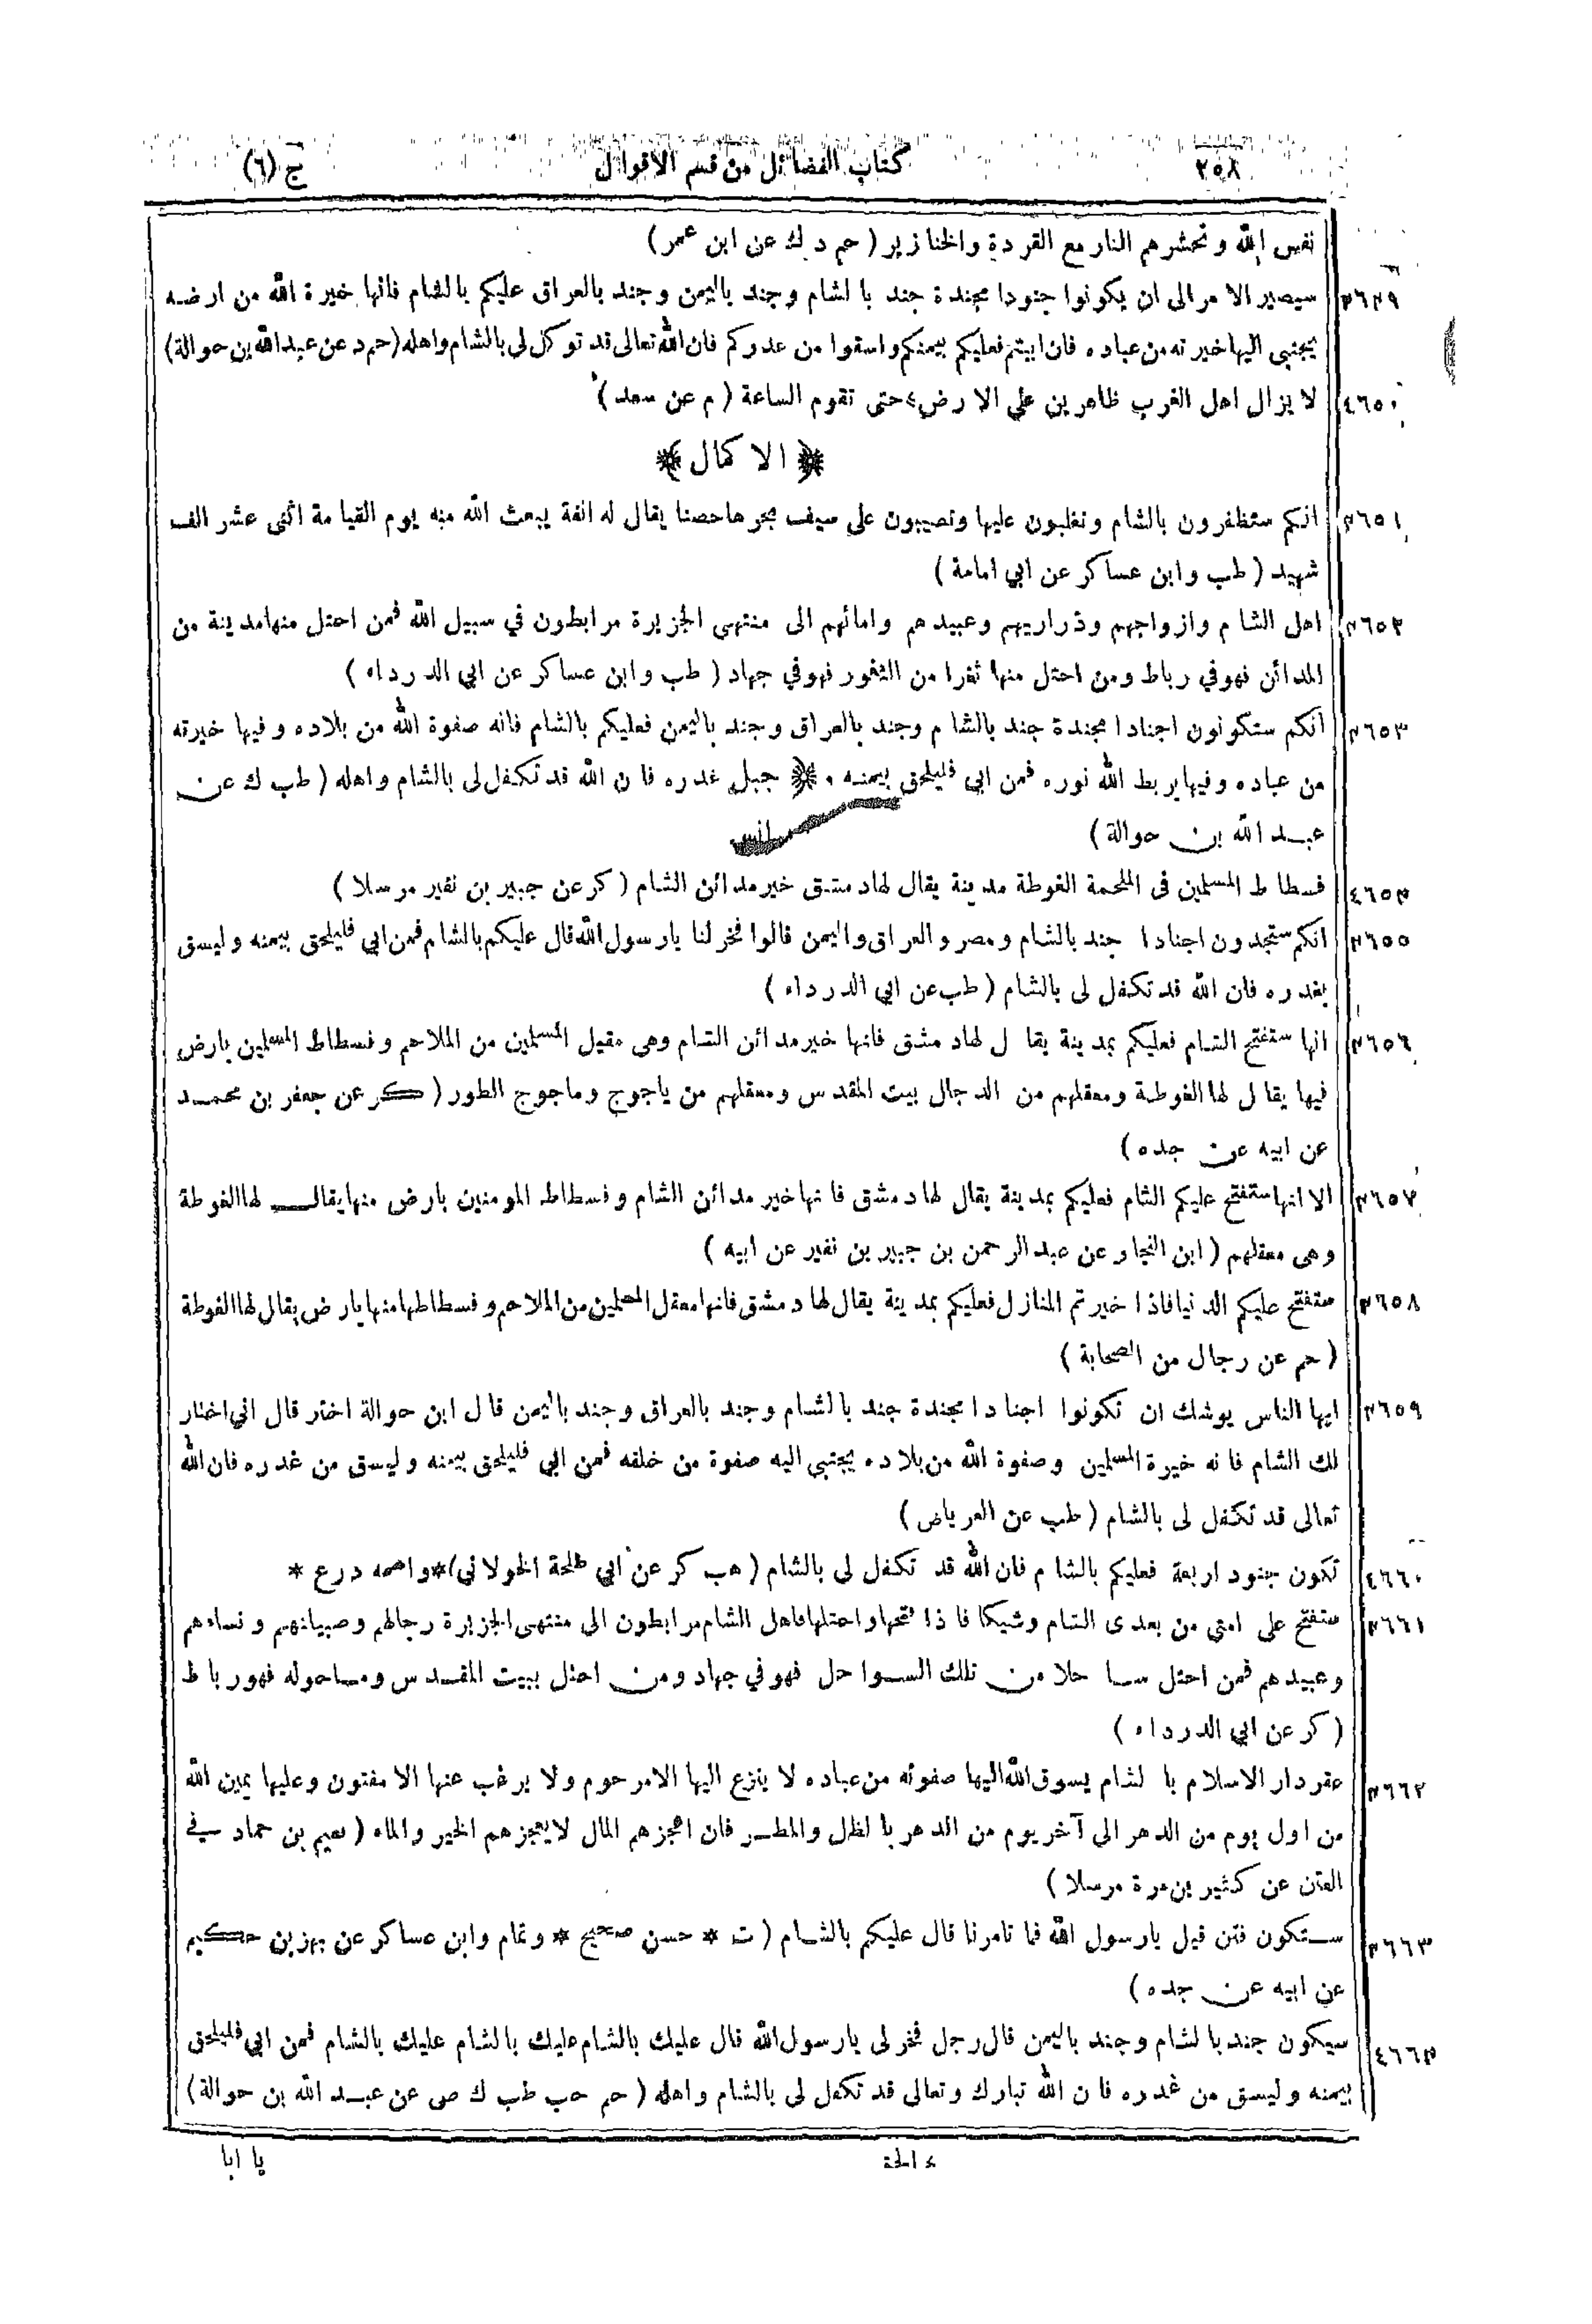 ٢٥٨ كتاب الفضائل من قسم الاقوال ج (٦)
نفس الله وتحشرهم النار مع القردة والخنازير (حم د ك عن ابن عمر)
٤٦٤٩ سيصير الامر الى ان يكونوا جنودا مجندة جند بالشام وجند باليمن وجند بالعراق عليكم بالشام فانها خيرة الله من ارضه
يجتبي اليها خيرته من عباده فان ابيتم فعليكم بيمنكم واسقوا من غدركم فان الله تعالى قد توكل لى بالشام واهله (حم د عن عبد الله بن حوالة)
٤٦٥٠ لا يزال اهل الغرب ظاهرين علي الارض حتى تقوم الساعة (م عن سعد)
﴿ الاكمال ﴾
٤٦٥١ انكم ستظفرون بالشام وتغلبون عليها وتصيبون على سيف بحرها حصنا يقال له انفة يبعث الله منه يوم القيامة اثنى عشر الف
شهيد (طب وابن عساكر عن ابي امامة)
٤٦٥٢ اهل الشام وازواجهم وذراريهم وعبيدهم وامائهم الى منتهى الجزيرة مرابطون في سبيل الله فمن احتل منها مدينة من
المدائن فهو في رباط ومن احتل منها ثغرا من الثغور فهو في جهاد (طب وابن عساكر عن ابي الدرداء)
٤٦٥٣ انكم ستكونون اجنادا مجندة جند بالشام وجند بالعراق وجند باليمن فعليكم بالشام فانه صفوة الله من بلاده وفيها خيرته
من عباده وفيها يربط الله نوره فمن ابي فليلحق بيمنه ٠ ﴿ جبل غدره فان الله قد تكفل لى بالشام واهله (طب ك عن
عبد الله بن حوالة)
٤٦٥٤ فسطاط المسلمين فى الملحمة الغوطة مدينة يقال لها دمشق خير مدائن الشام (كر عن جبير بن نفير مرسلا)
٤٦٥٥ انكم ستجدون اجنادا جند بالشام ومصر والعراق واليمن قالوا فخر لنا يا رسول الله قال عليكم بالشام فمن ابي فليلحق بيمنه وليسق
بغدره فان الله قد تكفل لى بالشام (طب عن ابي الدرداء)
٤٦٥٦ انها ستفتح الشام فعليكم بمدينة يقال لها دمشق فانها خير مدائن الشام وهى مقيل المسلمين من الملاحم وفسطاط المسلمين بارض
فيها يقال لها الغوطة ومعقلهم من الدجال بيت المقدس ومعقلهم من ياجوج وماجوج الطور (كر عن جعفر بن محمد
عن ابيه عن جده)
٤٦٥٧ الا انها ستفتح عليكم الشام فعليكم بمدينة يقال لها دمشق فانها خير مدائن الشام وفسطاط المومنين بارض منها يقال لها الغوطة
وهى معقلهم (ابن النجار عن عبد الرحمن بن جبير بن نفير عن ابيه)
٤٦٥٨ ستفتح عليكم الدنيا فاذا خيرتم المنازل فعليكم بمدينة يقال لها دمشق فانها معقل المسلمين من الملاحم وفسطاطها منها بارض يقال لها الغوطة
(حم عن رجال من الصحابة)
٤٦٥٩ ايها الناس يوشك ان تكونوا اجنادا مجندة جند بالشام وجند بالعراق وجند باليمن قال ابن حوالة اختر قال اني اختار
لك الشام فانه خيرة المسلمين وصفوة الله من بلاده يجتبي اليه صفوة من خلقه فمن ابي فليلحق بيمنه وليسق من غدره فان الله
تعالى قد تكفل لى بالشام (طب عن العرباض)
٤٦٦٠ تكون جنود اربعة فعليكم بالشام فان الله قد تكفل لى بالشام (هب كر عن ابي طلحة الخولاني)*واسمه درع *
٤٦٦١ ستفتح على امتي من بعدى الشام وشيكا فاذا فتحها واحتلها فاهل الشام مرابطون الى منتهى الجزيرة رجالهم وصبيانهم ونساءهم
وعبيدهم فمن احتل ساحلا من تلك السواحل فهو في جهاد ومن احتل ببيت المقدس وما حوله فهو رباط
(كر عن ابي الدرداء)
٤٦٦٢ عقر دار الاسلام بالشام يسوق الله اليها صفوته من عباده لا ينزع اليها الا مرحوم ولا يرغب عنها الا مفتون وعليها يمين الله
من اول يوم من الدهر الى آخر يوم من الدهر بالظل والمطر فان اعجزهم المال لا يعجزهم الخير والماء (نعيم بن حماد في
الفتن عن كثير بن مرة مرسلا)
٤٦٦٣ ستكون فتن قيل يا رسول الله فما تامرنا قال عليكم بالشام (ت * حسن صحيح * وتمام وابن عساكر عن بهز بن حكيم
عن ابيه عن جده)
٤٦٦٤ سيكون جند بالشام وجند باليمن قال رجل فخر لى يا رسول الله قال عليك بالشام عليك بالشام عليك بالشام فمن ابي فليلحق
بيمنه وليسق من غدره فان الله تبارك وتعالى قد تكفل لى بالشام واهله (حم حب طب ك ص عن عبد الله بن حوالة)
يا ابا